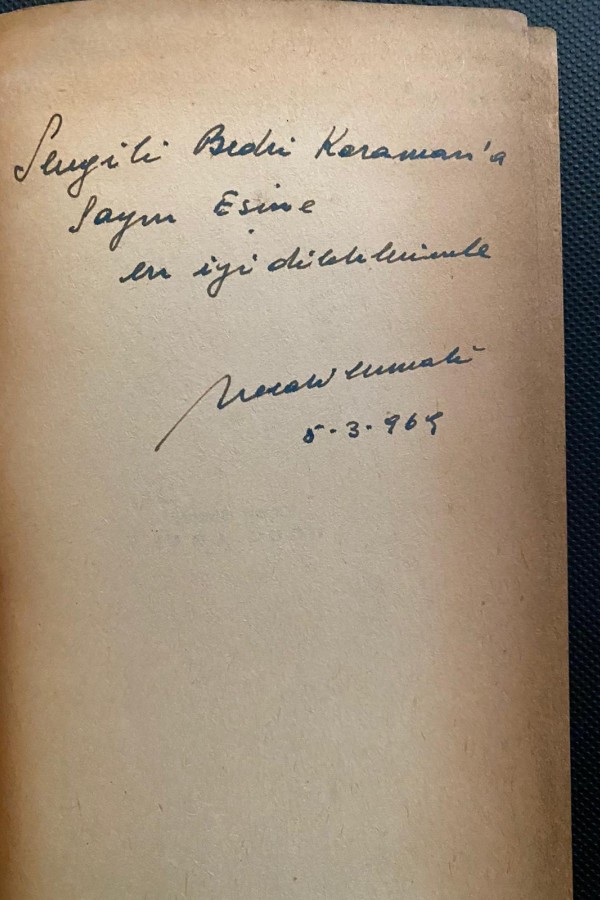 Sevgili Bedri Koraman'a
Sayın Esine
en iyi dileklerimle
Necati Cumalı
5.3.965